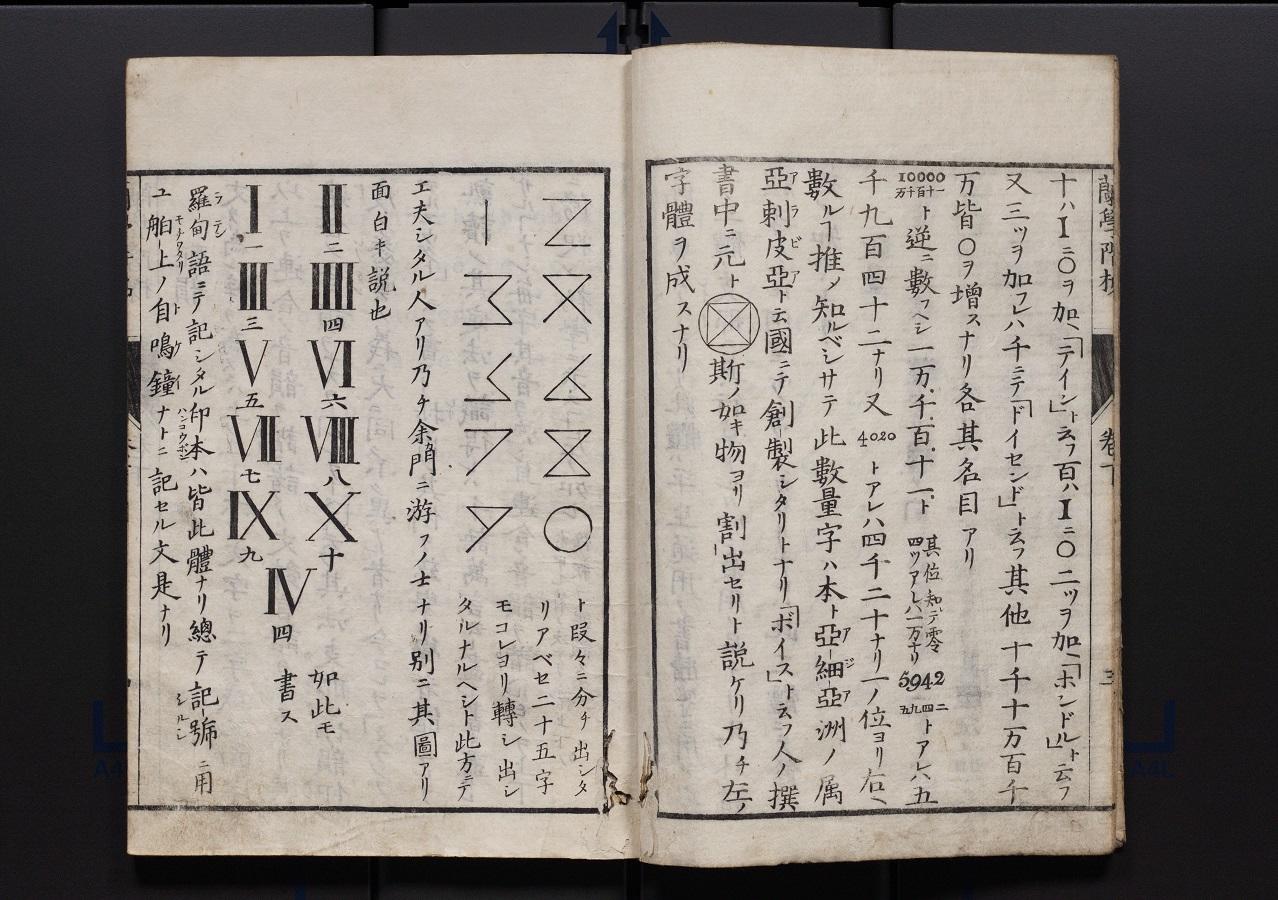 十ハIニ〇ヲ加ヘ「テイイン」ト云フ百ハIニ〇二ツヲ加ヘ「ホンドル」ト云フ
又三ツヲ加フレハ千ニテ「ドイセンド」ト云フ其他十千十万百千
万皆〇ヲ増スナリ各其名目アリ
10000
万千百十一
ト逆ニ數フヘシ一万、千、百、十、一、ト
其位知ルヘシ零
四ツアレハ一万ナリ
5942
五九四二
トアレハ五
千九百四十二ナリ又4020トアレハ四千二十ナリ一ノ位ヨリ右ヘ
數ルヿ推〆知ルベシサテ此數量字ハ本ト亞細亞洲ノ属
亞剌皮亞ト云國ニテ創製シタリトナリ「ボイス」ト云フ人ノ撰
書中ニ元ト
斯ノ如キ物ヨリ割出セリト説ケリ乃チ左ノ
字體ヲ成スナリ
蘭學階梯
卷下
三
ト段々ニ分チ出シタ
リアベセ二十五字
モコレヨリ轉シ出シ
タルナルヘシト此方ニテ
工夫シタル人アリ乃チ余門ニ游フノ士ナリ別ニ其圖アリ
面白キ説也
II 二 IIII 四 VI 六 VIII 八 X 十
I 一 III 三 V 五 VII 七 IX 九
IV 四
如此モ
書ス
羅甸語ニテ記シタル印本ハ皆此體ナリ總テ記號ニ用
ラテン
ハンコウボン
シルシ
ユ舶上ノ自鳴鐘ナトニ記セル文是ナリ
トケイ